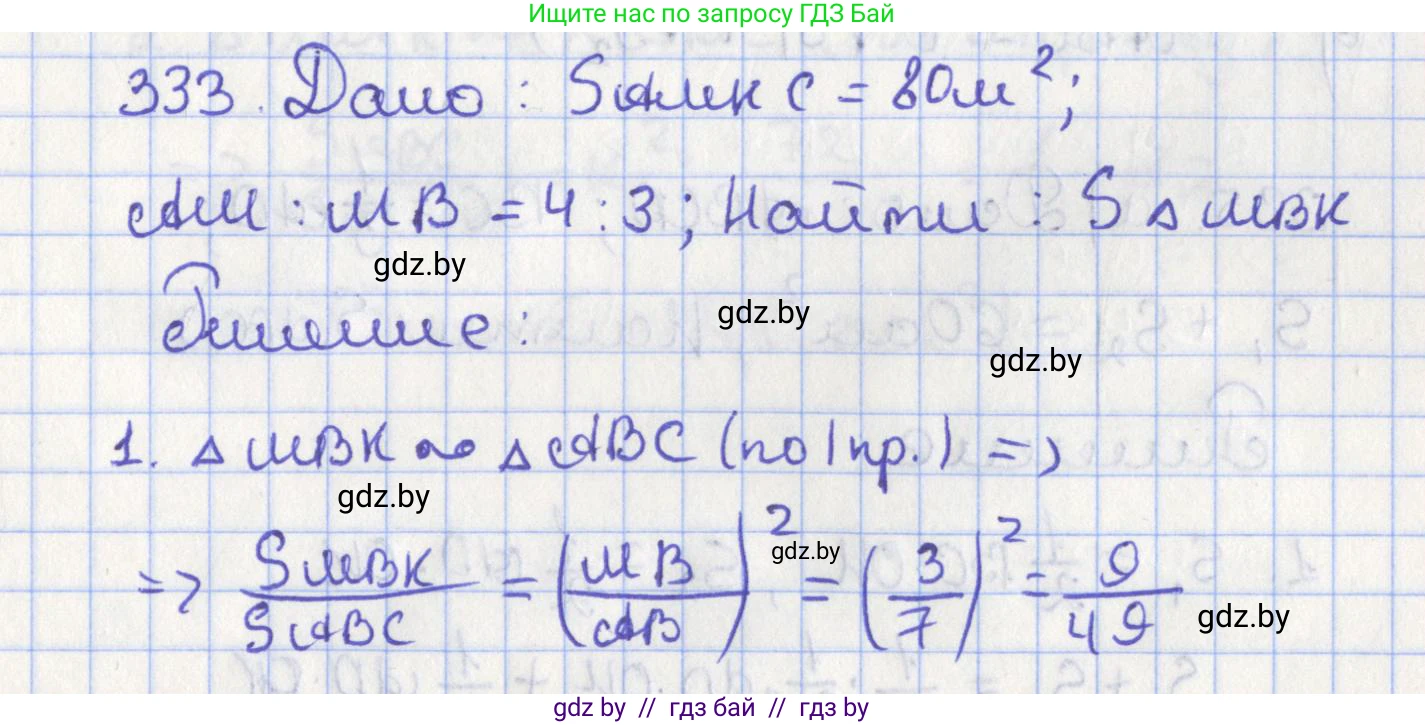 Ищите нас по запросу ГДЗ Бай
333. Дано : SАМКС = 80м²;
АМ : МВ = 4 : 3 ; Найти : S △ МВК
gdz.by
Решение :
gdz.by
gdz.by
1. △ МВК ∾ △ АВС (по I пр.) =>
gdz.by
=> SМВК / SАВС = (МВ / АВ)² = (3 / 7)² = 9 / 49
gdz.by
gdz.by
gdz by // гдз бай // гдз by